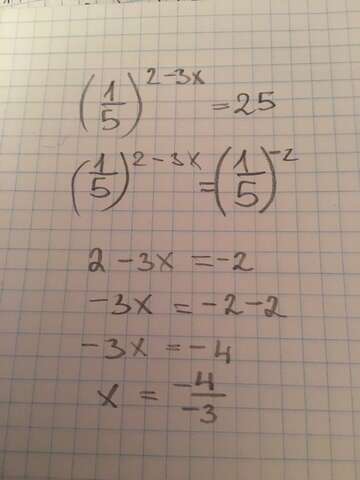 (1/5)^2-3x = 25
(1/5)^2-3x = (1/5)^-2
2 - 3x = -2
-3x = -2-2
-3x = -4
x = -4/-3